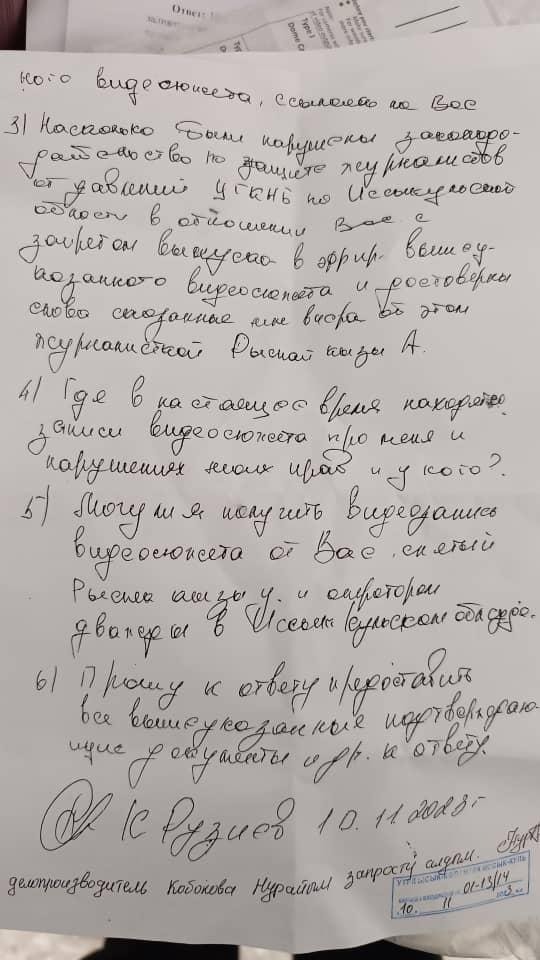 Ответ:
Type I
Dome Co
ного видеосюжета, ссылаясь на Вас
3) Насколько были нарушены законода-
тельство по защите журналистов
от давлений УГКНБ по Иссыкульской
области в отношении Вас с
запретом выпуска в эфир вышеу-
казанного видеосюжета и достоверны
слова сказанные мне вчера об этом
журналисткой Рыспай кызы А.
4) Где в настоящее время находятся
записи видеосюжета про меня и
нарушения моих прав и у кого?
5) Могу ли я получить видеозапись
видеосюжета от Вас, снятый
кызы и оператором
дважды в Иссык Кульском обл
6) Прошу к ответу предоставить
все вышеуказанные подтверждаю-
щие документы и др. к ответу.
К Рузиев 10.11.2023г
делопроизводитель Кобокова Нурайым запросту алдым.
01-13/14
10. 11 3